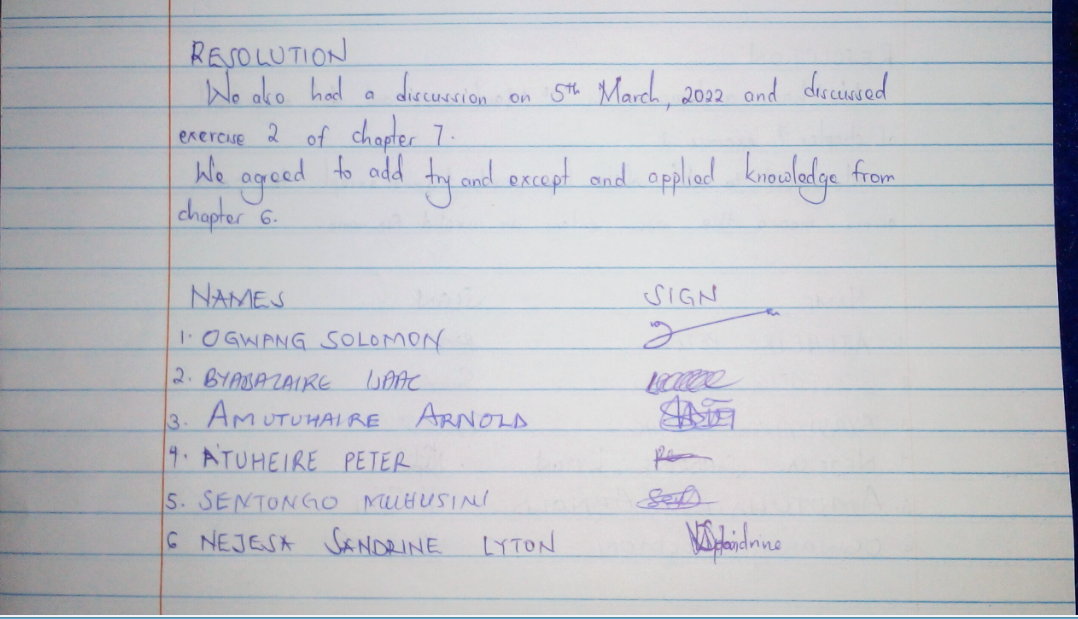 RESOLUTION
We also had a discussion on 5th March, 2022 and discussed
exercise 2 of chapter 7.
We agreed to add try and except and applied knowledge from
chapter 6.
NAMES SIGN
1. OGWANG SOLOMON
2. BYABAZAIRE ISAAC
3. AMUTUHAIRE ARNOLD
4. ATUHEIRE PETER
5. SENTONGO MUHUSINI
6 NEJESA SANDRINE LYTON